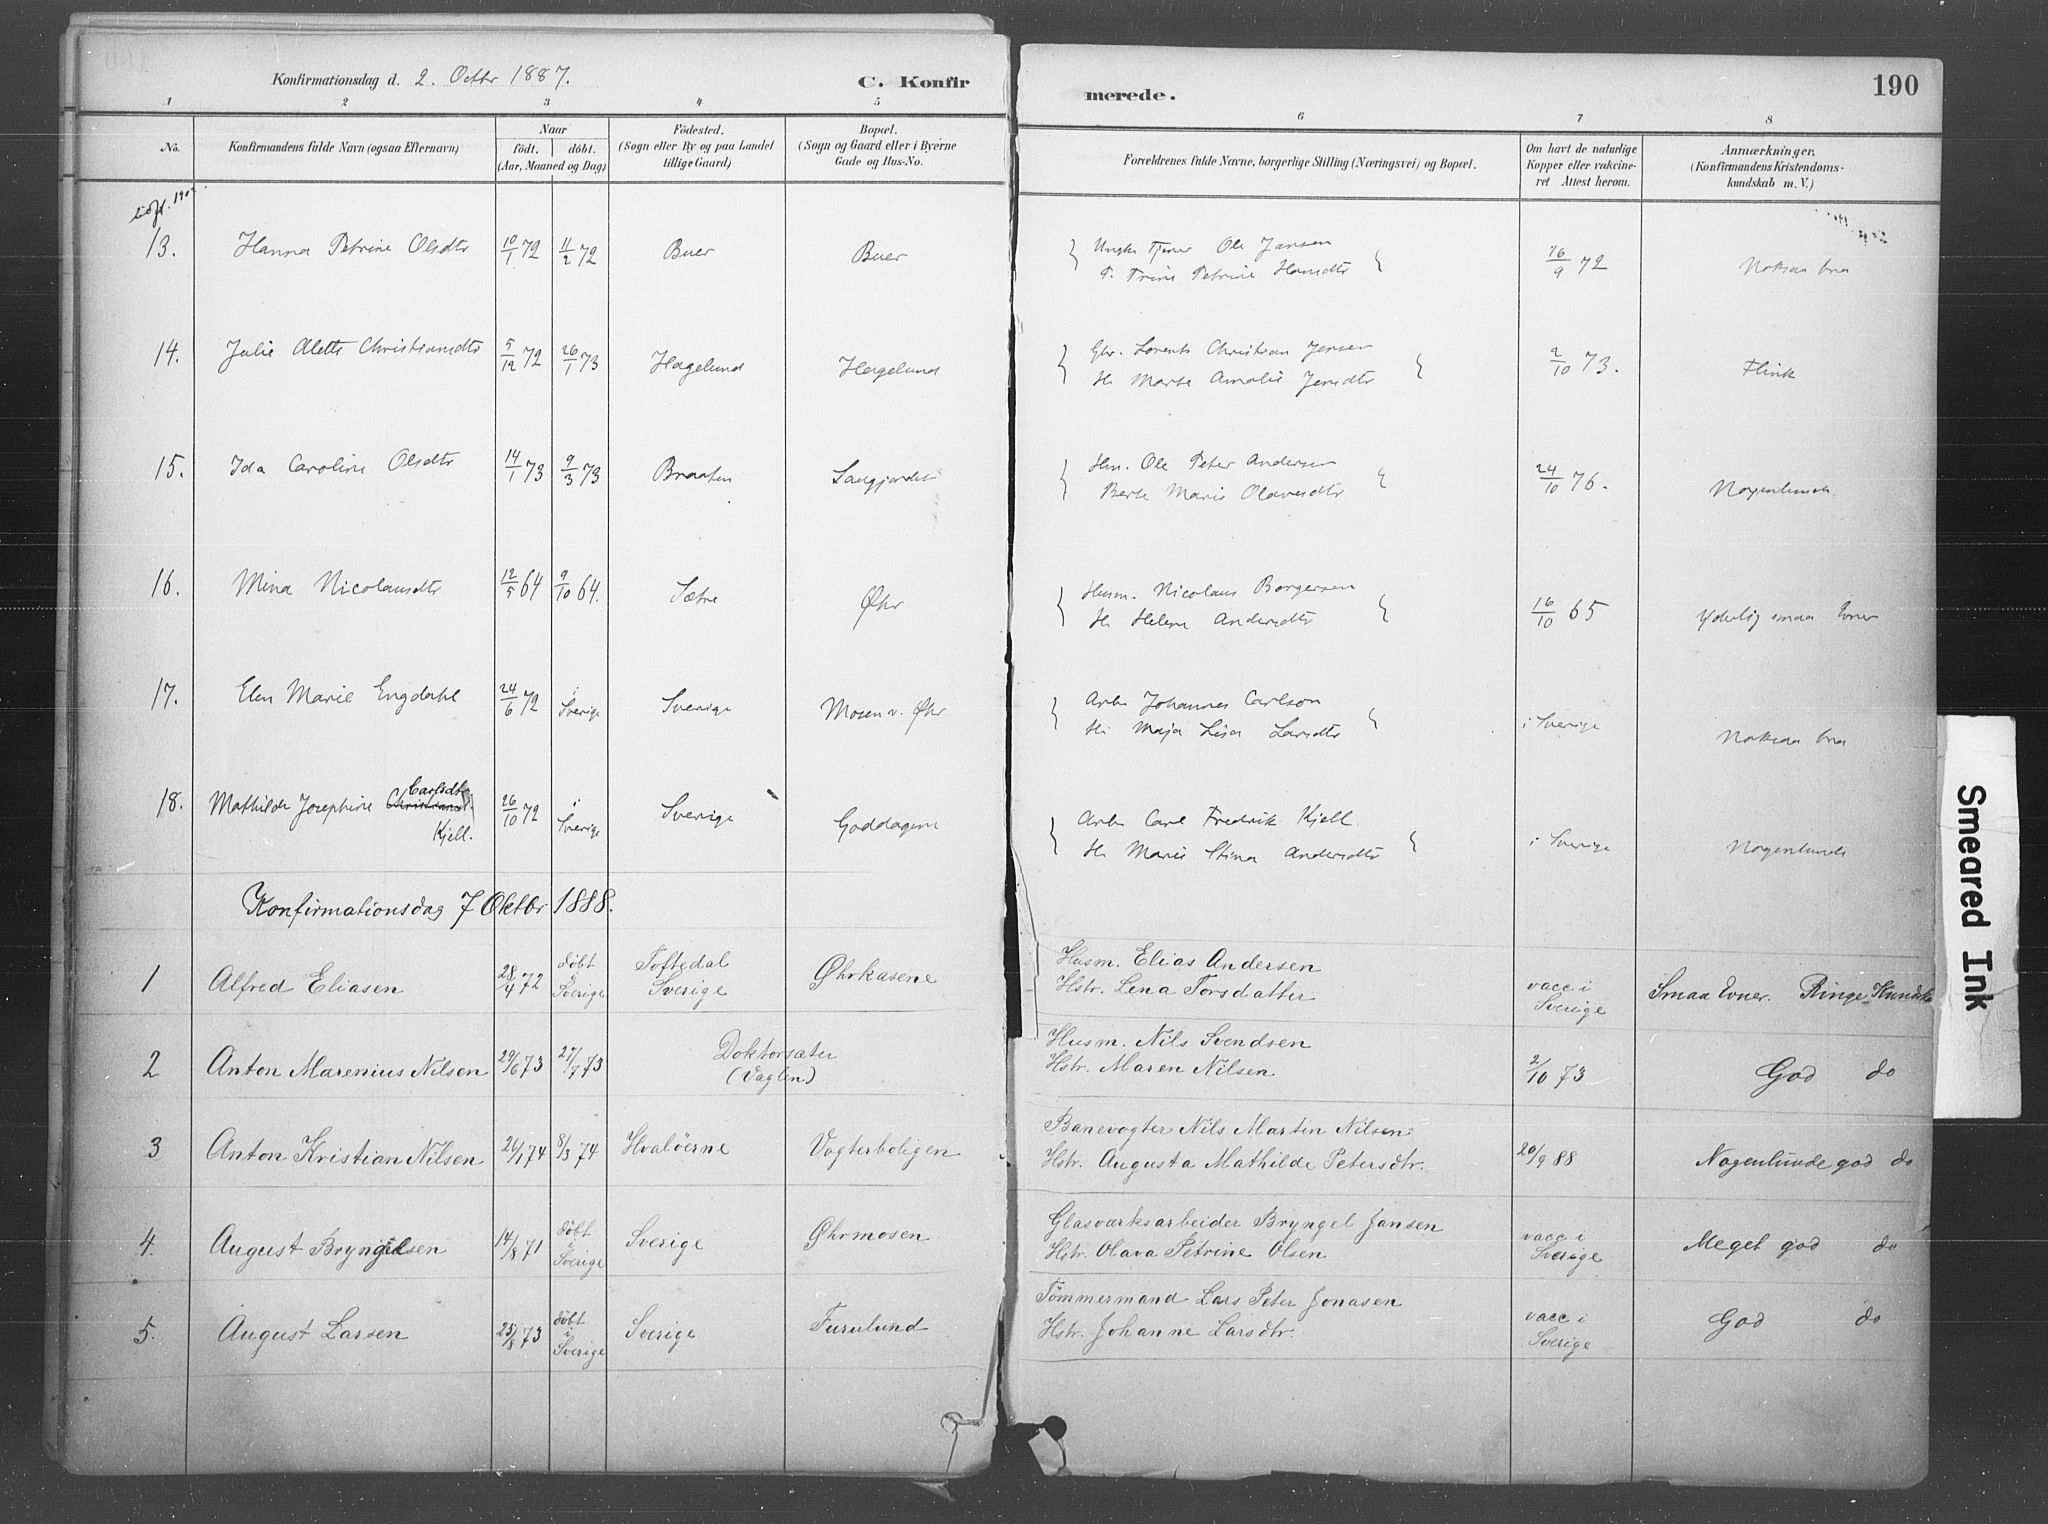 190
Konfirmationsdag d. 2. Octbr 1887.
C. Konfirmerede.
1 2 3 4 5 6 7 8
No.
Konfirmandens fulde Navn (ogsaa Efternavn)
Naar
födt. döbt.
(Aar, Maaned og Dag)
Födested.
(Sogn eller By og paa Landet tillige Gaard)
Bopæl.
(Sogn og Gaard eller i Byerne Gade og Hus-No.
Forældrenes fulde Navne, borgerlige Stilling (Næringsvei) og Bopæl.
Om havt de naturlige Kopper eller vakcineret Attest herom.
Anmærkninger,
(Konfirmandens Kristendomskundskab m. V.)
13. Hanna Petrine Olsdtr 10/1 72 11/2 72 Buer Buer Ungk. Tjener Ole Jansen 16/9 72 Noksaa bra
P. Trine Petrine Hansdtr
14. Julie Alette Christiansdtr 5/12 72 26/1 73 Hagelund Hagelund Gbr. Lorents Christian Jensen 2/10 73. Flink
H. Marte Amalie Jensdtr
15. Ida Caroline Olsdtr 14/1 73 9/3 73 Braaten Langjordet Hm. Ole Peter Andersen 24/10 76. Nogenlunde
Berte Marie Olavesdtr
16. Mina Nicolausdtr 12/5 64 9/10 64. Sætre Øhr Husm. Nicolaus Borgersen 16/10 65 Yderlig smaa Evner
H. Helene Andersdtr
17. Elen Marie Engdahl 24/6 72 i Sverige Sverige Mosen v. Øhr Arb. Johannes Carlson i Sverige Noksaa bra
H. Maja Lisa Larsdtr
18. Mathilde Josephine Carlsdtr Kjell. 26/10 72 i Sverige Sverige Goddagen Arb. Carl Fredrik Kjell i Sverige Nogenlunde
H. Marie Stina Andersdtr
Konfirmationsdag 7 Oktbr 1888.
1 Alfred Eliasen 28/4 72 döbt i Sverige Toftedal Sverige Øhrkasene Husm. Elias Andersen vacc i Sverige Smaa Evner. Ringe Kundsk
Hstr. Lena Torsdatter
2 Anton Marenius Nilsen 29/6 73 27/7 73 Doktorsæter (Vaglen) Husm. Nils Svendsen 2/10 73 God do
Hstr. Maren Nilsen
3 Anton Kristian Nilsen 26/1 74 8/3 74 Hvalöerne Vogterboligen Banevogter Nils Martin Nilsen 20/9 88 Nogenlunde god do
Hstr. Augusta Mathilde Petersdtr.
4. August Bryngelsen 14/8 71 döbt i Sverige Sverige Øhrmosen Glasværksarbeider Bryngel Jansen vacc i Sverige Meget god do
Hstr. Olava Petrine Olsen
5. August Larsen 25/8 73 döbt i Sverige Sverige Furulund Tömmermand Lars Peter Jonasen vacc i Sverige God do
Hstr. Johanne Larsdtr.
Smeared Ink